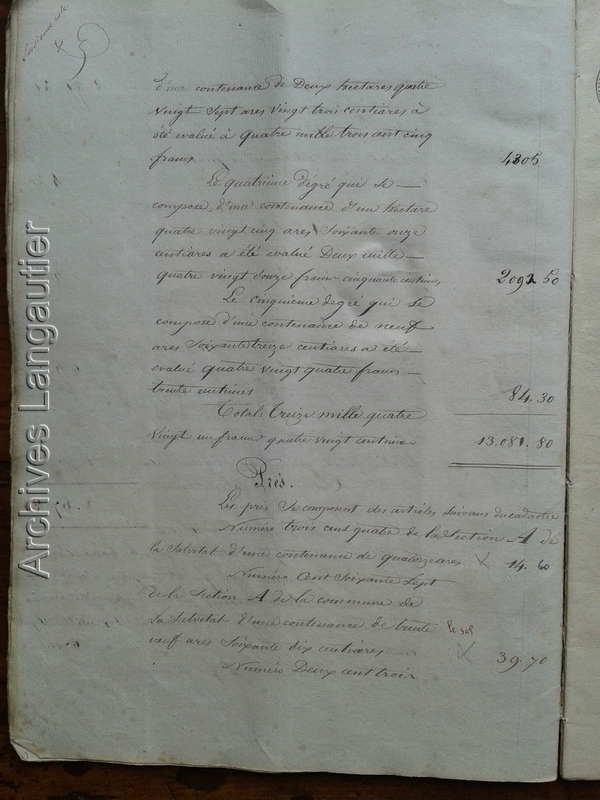 d'une contenance de Deux hectares quatre
vingt Sept ares vingt trois centiares a
été evalué à quatre mille trois cent cinq
francs 4305
Le quatrième dégré qui se
compose d'une contenance d'un hectare
quatre vingt cinq ares Soixante onze
centiares a été evalué Deux mille
quatre vingt douze francs cinquante centimes 2092 50
Le cinquième degré qui se
compose d'une contenance de neuf
ares Soixante treize centiares a été
evalué quatre vingt quatre francs
trente centimes 84.30
Total: treize mille quatre
vingt un francs quatre vingt centimes 13.081.80
Prés.
Les prés Se composent des articles Suivans du cadastre
Numéro trois cent quatre de la Section A de
la Salvetat d'une contenance de quatorze ares X 14.60
Numéro Cent Soixante Sept
de la Section A de la commune de
La Salvetat d'une contenance de trente le sol
neuf ares Soixante dix centiares X 39.70
Numéro Deux cent trois
Archives Langautier